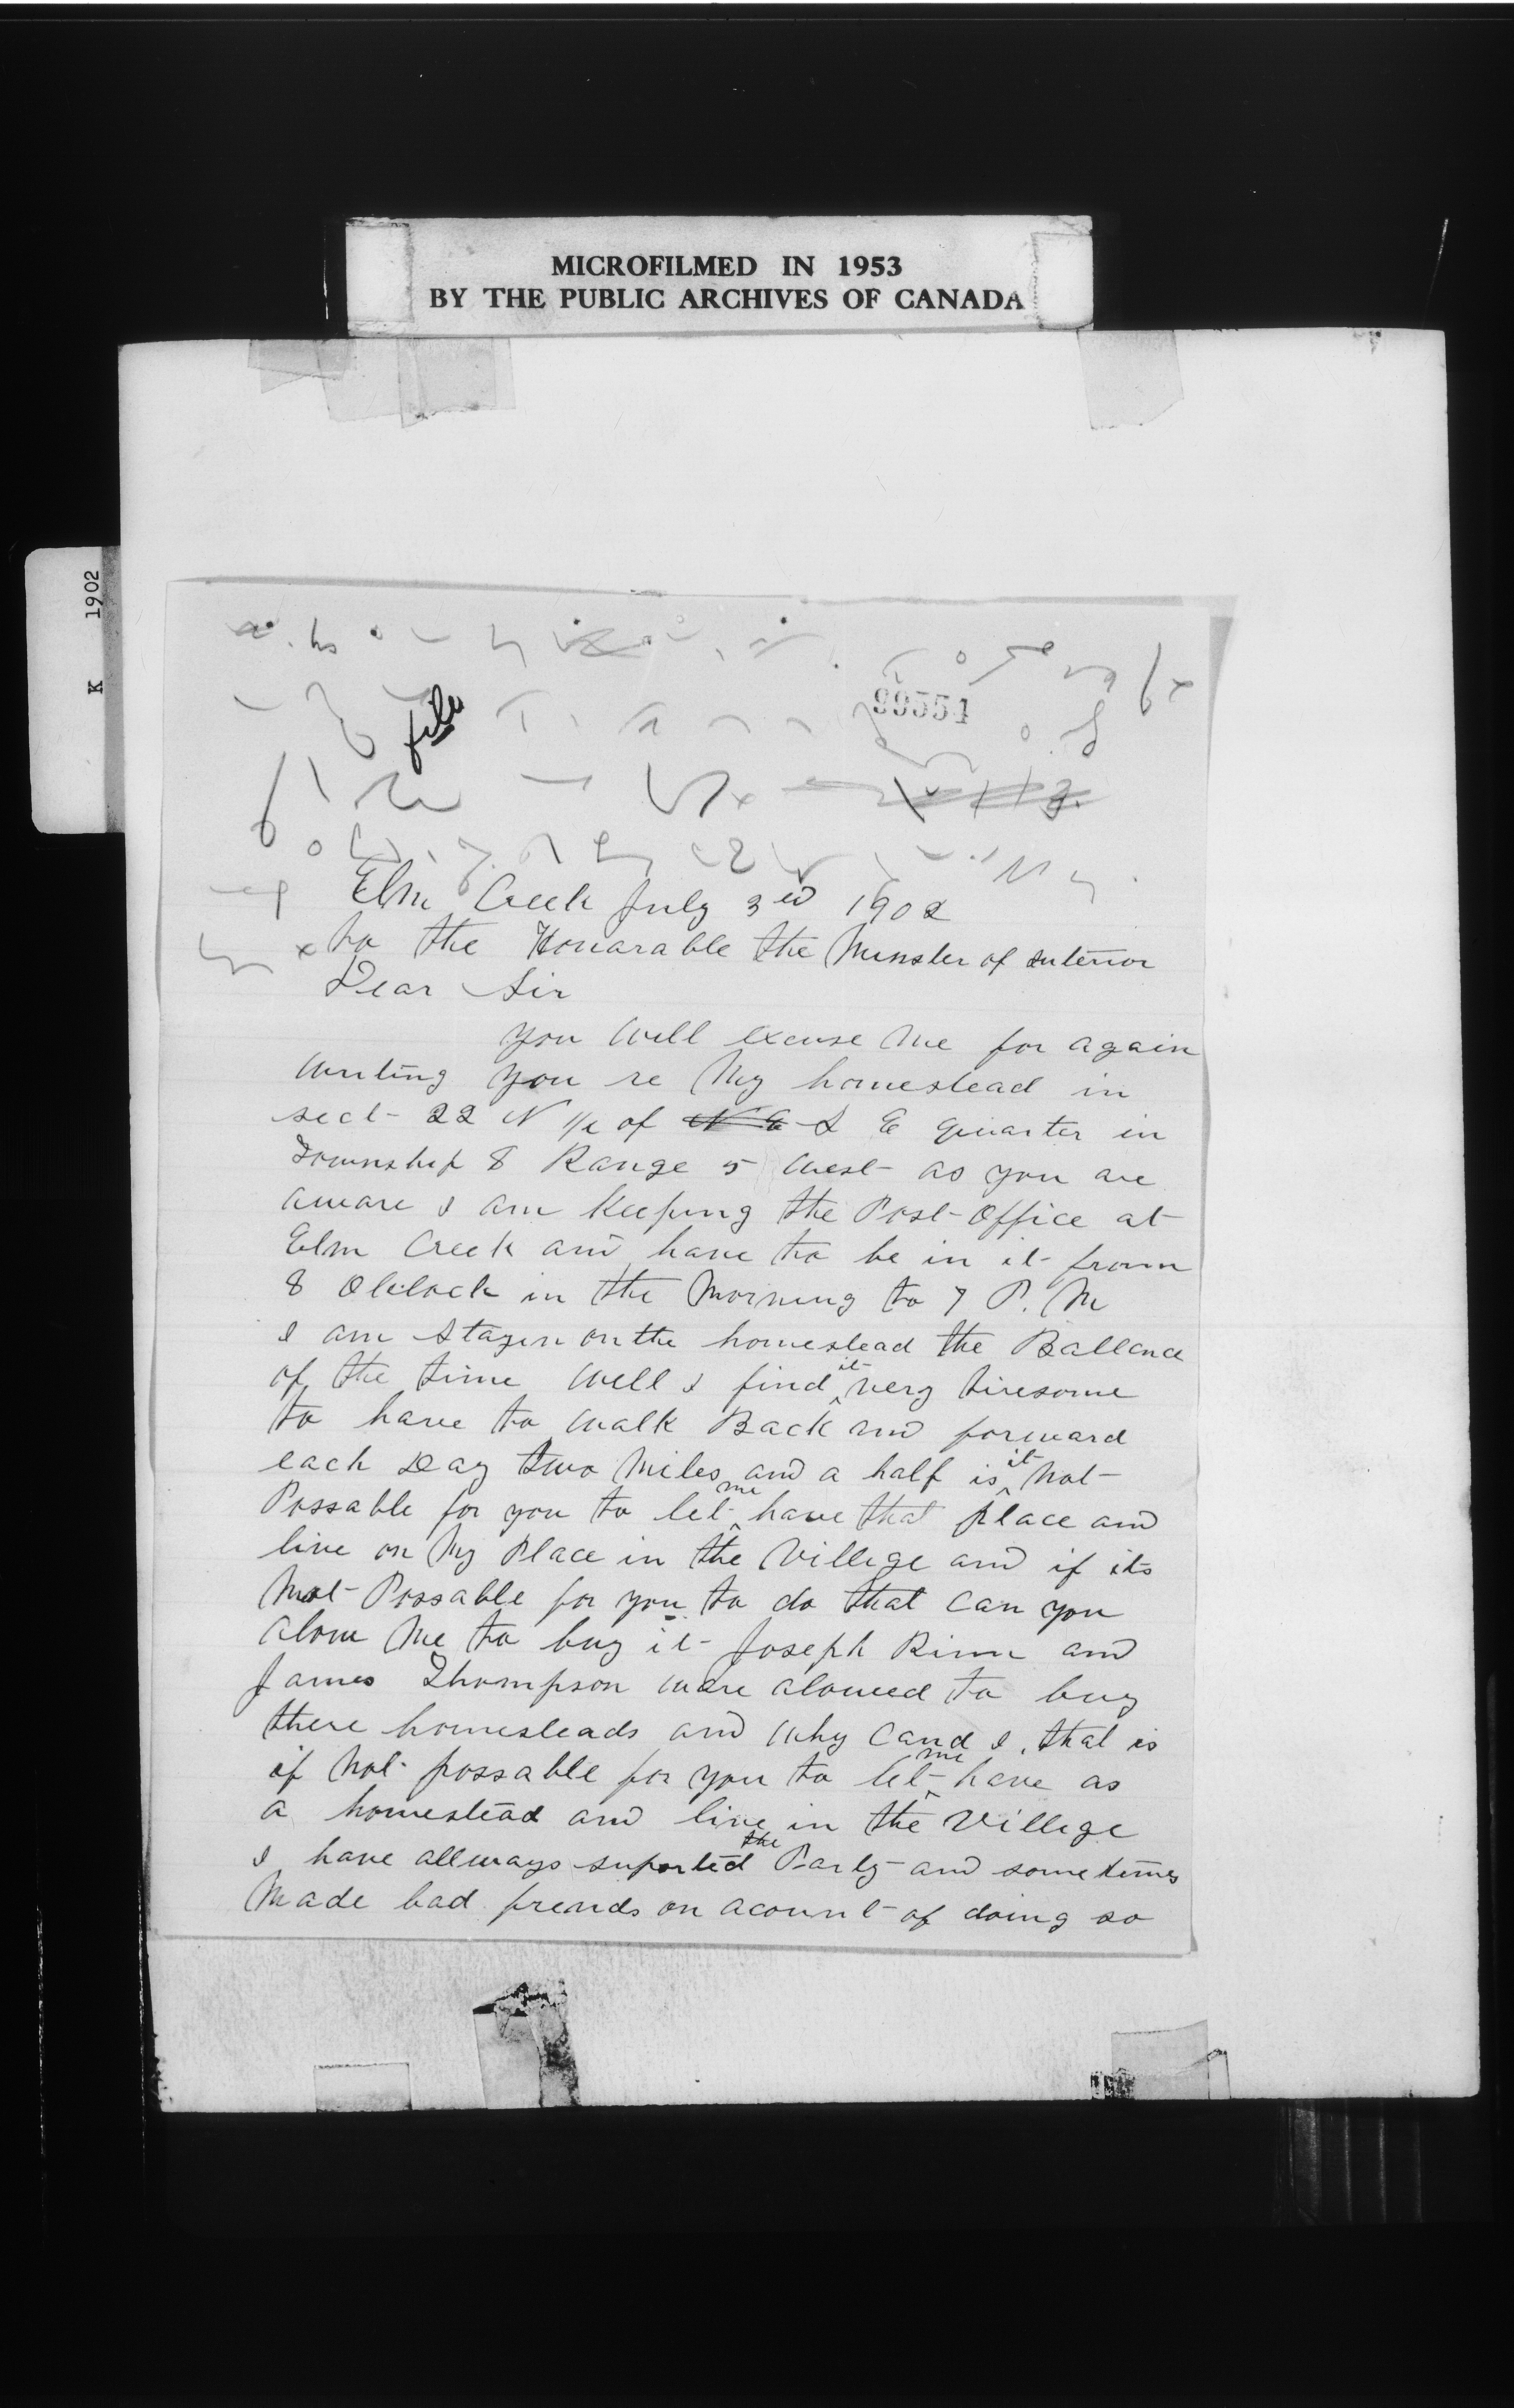 MICROFILMED IN 1953
BY THE PUBLIC ARCHIVES OF CANADA
K 1902
file
99554
Elm Creek July 3rd 1902
to the Honarable the Minster of Interior
Dear Sir
You Will excuse Me for again
Writing you re My homestead in
sect 22 N 1/2 of N E S E quarter in
Township 8 Range 5 West as you are
aware I am Keeping the Post Office at
Elm Creek and have to be in it from
8 Oclock in the Morning to 7 P. M
I am Stayin on the homestead the Ballance
of the time Well I find it very tiresome
to have to Walk Back and forward
each Day two Miles and a half is it Not
Possable for you to let me have that place and
live on My Place in the Villege and if its
Not Possable for you to do that Can you
alow Me to buy it Joseph Rinn and
James Thompson Were alowed to buy
there homesteads and Why Cand I. that is
if Not possable for you to let me have as
a homestead and live in the Villege
I have allways suported the Party and sometimes
Made bad frends on acount of doing so